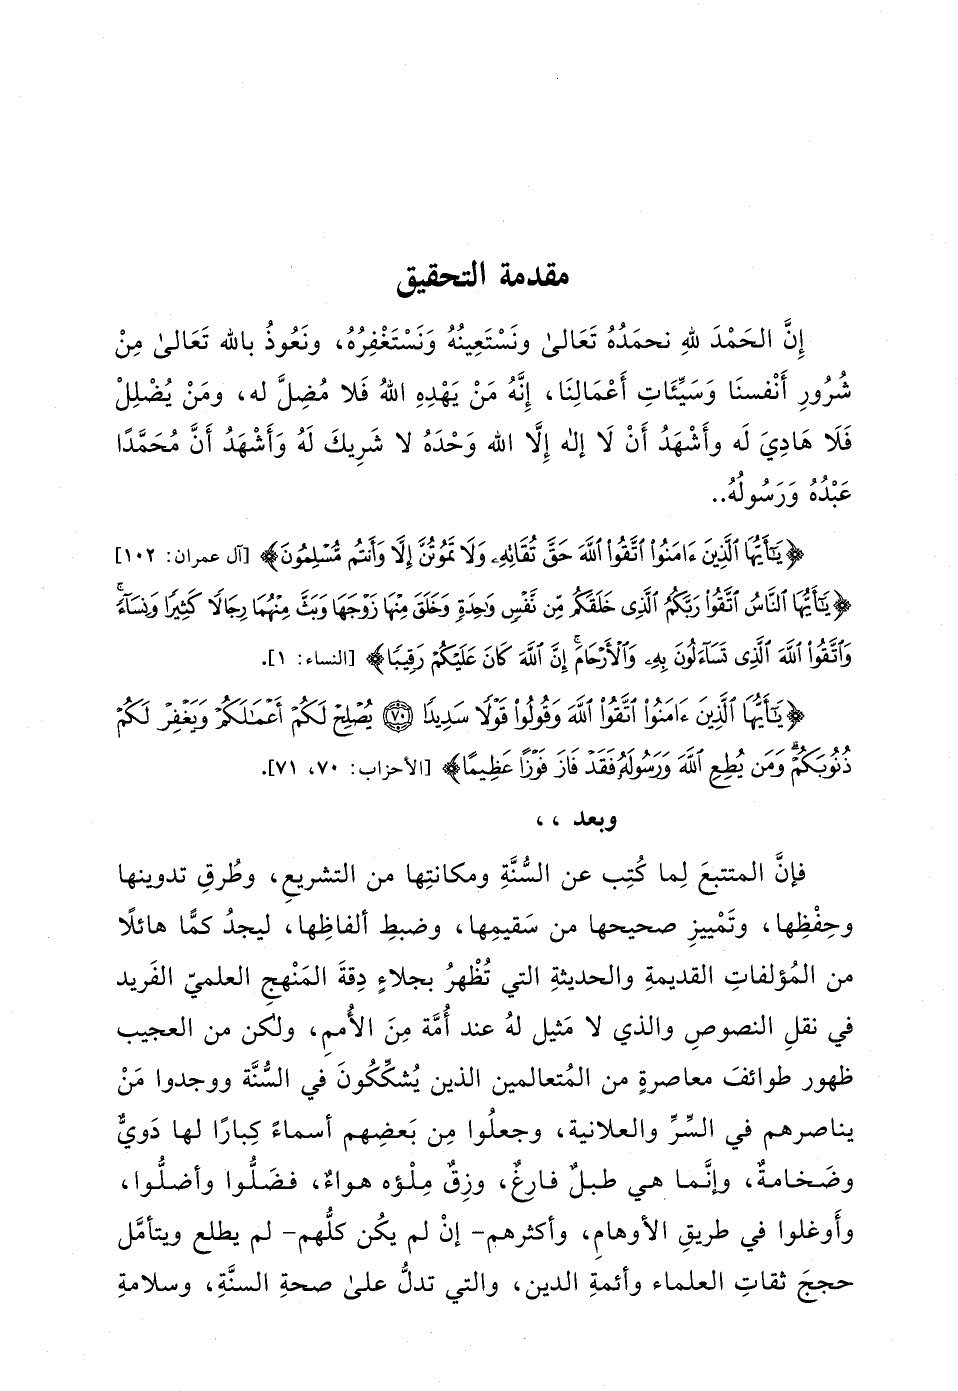 مقدمة التحقيق
إِنَّ الحَمْدَ للهِ نحمَدُهُ تَعَالىٰ ونَسْتَعِينُهُ وَنَسْتَغْفِرُهُ، ونَعُوذُ بالله تَعَالىٰ مِنْ
شُرُورِ أَنْفسنَا وَسَيِّئَاتِ أَعْمَالِنَا، إِنَّهُ مَنْ يَهْدِهِ اللهُ فَلا مُضِلَّ له، ومَنْ يُضْلِلْ
فَلَا هَادِيَ لَه وأَشْهَدُ أَنْ لَا إلٰه إِلَّا الله وَحْدَهُ لا شَرِيكَ لَهُ وَأَشْهَدُ أَنَّ مُحَمَّدًا
عَبْدُهُ وَرَسُولُهُ..
﴿يَٰٓأَيُّهَا ٱلَّذِينَ ءَامَنُوا۟ ٱتَّقُوا۟ ٱللَّهَ حَقَّ تُقَاتِهِۦ وَلَا تَمُوتُنَّ إِلَّا وَأَنتُم مُّسْلِمُونَ﴾ [آل عمران: ١٠٢]
﴿يَٰٓأَيُّهَا ٱلنَّاسُ ٱتَّقُوا۟ رَبَّكُمُ ٱلَّذِى خَلَقَكُم مِّن نَّفْسٍ وَٰحِدَةٍ وَخَلَقَ مِنْهَا زَوْجَهَا وَبَثَّ مِنْهُمَا رِجَالًا كَثِيرًا وَنِسَآءً ۚ
وَٱتَّقُوا۟ ٱللَّهَ ٱلَّذِى تَسَآءَلُونَ بِهِۦ وَٱلْأَرْحَامَ ۚ إِنَّ ٱللَّهَ كَانَ عَلَيْكُمْ رَقِيبًا﴾ [النساء: ١].
﴿يَٰٓأَيُّهَا ٱلَّذِينَ ءَامَنُوا۟ ٱتَّقُوا۟ ٱللَّهَ وَقُولُوا۟ قَوْلًا سَدِيدًا ۝٧٠ يُصْلِحْ لَكُمْ أَعْمَٰلَكُمْ وَيَغْفِرْ لَكُمْ
ذُنُوبَكُمْ ۗ وَمَن يُطِعِ ٱللَّهَ وَرَسُولَهُۥ فَقَدْ فَازَ فَوْزًا عَظِيمًا﴾ [الأحزاب: ٧٠، ٧١].
وبعد ،،
فإنَّ المتتبعَ لِما كُتِب عن السُّنَّةِ ومكانتِها من التشريعِ، وطُرقِ تدوينها
وحِفْظِها، وتَمْييزِ صحيحها من سَقيمِها، وضبطِ ألفاظِها، ليجدُ كمًّا هائلًا
من المُؤلفاتِ القديمةِ والحديثةِ التي تُظْهرُ بجلاءٍ دِقةَ المَنْهجِ العلميّ الفَريد
في نقلِ النصوصِ والذي لا مَثيل لهُ عند أُمَّة مِنَ الأُممِ، ولكن من العجيب
ظهور طوائفَ معاصرةٍ من المُتعالمين الذين يُشكِّكُونَ في السُّنَّة ووجدوا مَنْ
يناصرهم في السِّرِّ والعلانية، وجعلُوا مِن بَعضِهم أسماءً كِبارًا لها دَويٌّ
وضَخامةٌ، وإنَّما هي طبلٌ فارغٌ، وزِقٌ مِلْؤه هواءٌ، فضَلُّوا وأضلُّوا،
وأَوغلوا في طريقِ الأوهامِ، وأكثرهم- إنْ لم يكُن كلُّهم- لم يطلع ويتأمَّل
حججَ ثقاتِ العلماء وأئمةِ الدين، والتي تدلُّ علىٰ صحةِ السنَّةِ، وسلامةِ